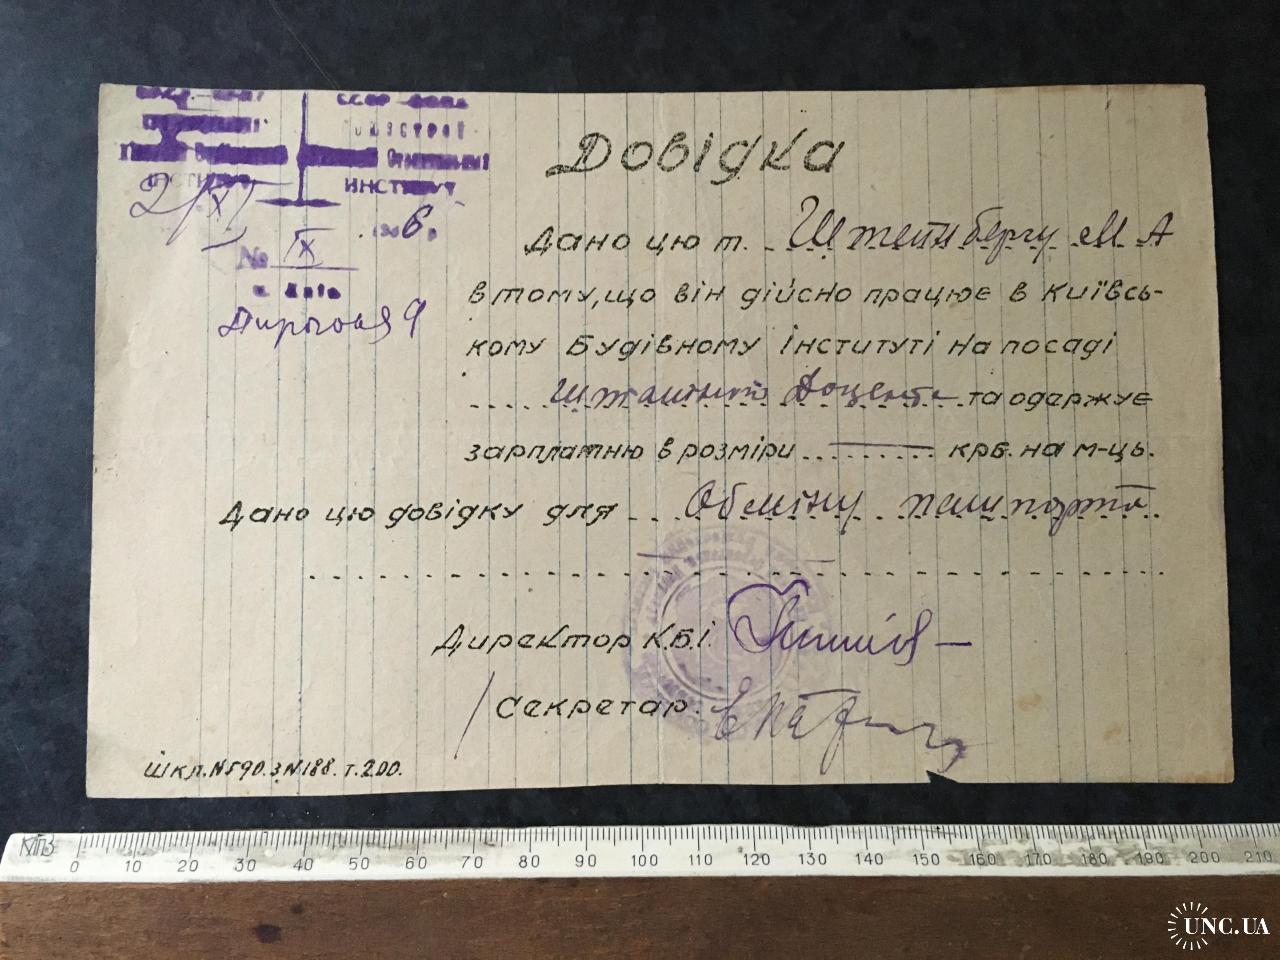 СССР
ИНСТИТУТ
ИНСТИТУТ
2/XI
6
№ IX
м. Київ
Довідка
Дано цю т. Штейнбергу М А
в тому, що він дійсно працює в Київсь-
кому Будівному інституті на посаді
штатного Доцента та одержує
зарплатню в розміри ......... крб. на м-ць.
Дано цю довідку для Обміну пашпорта
Директор К.Б.І.
Секретар.
Шкл. N590. З N188. т. 200.
МПЗ
0 10 20 30 40 50 60 70 80 90 100 110 120 130 140 150 160 170 180 190 200 210
UNC.UA